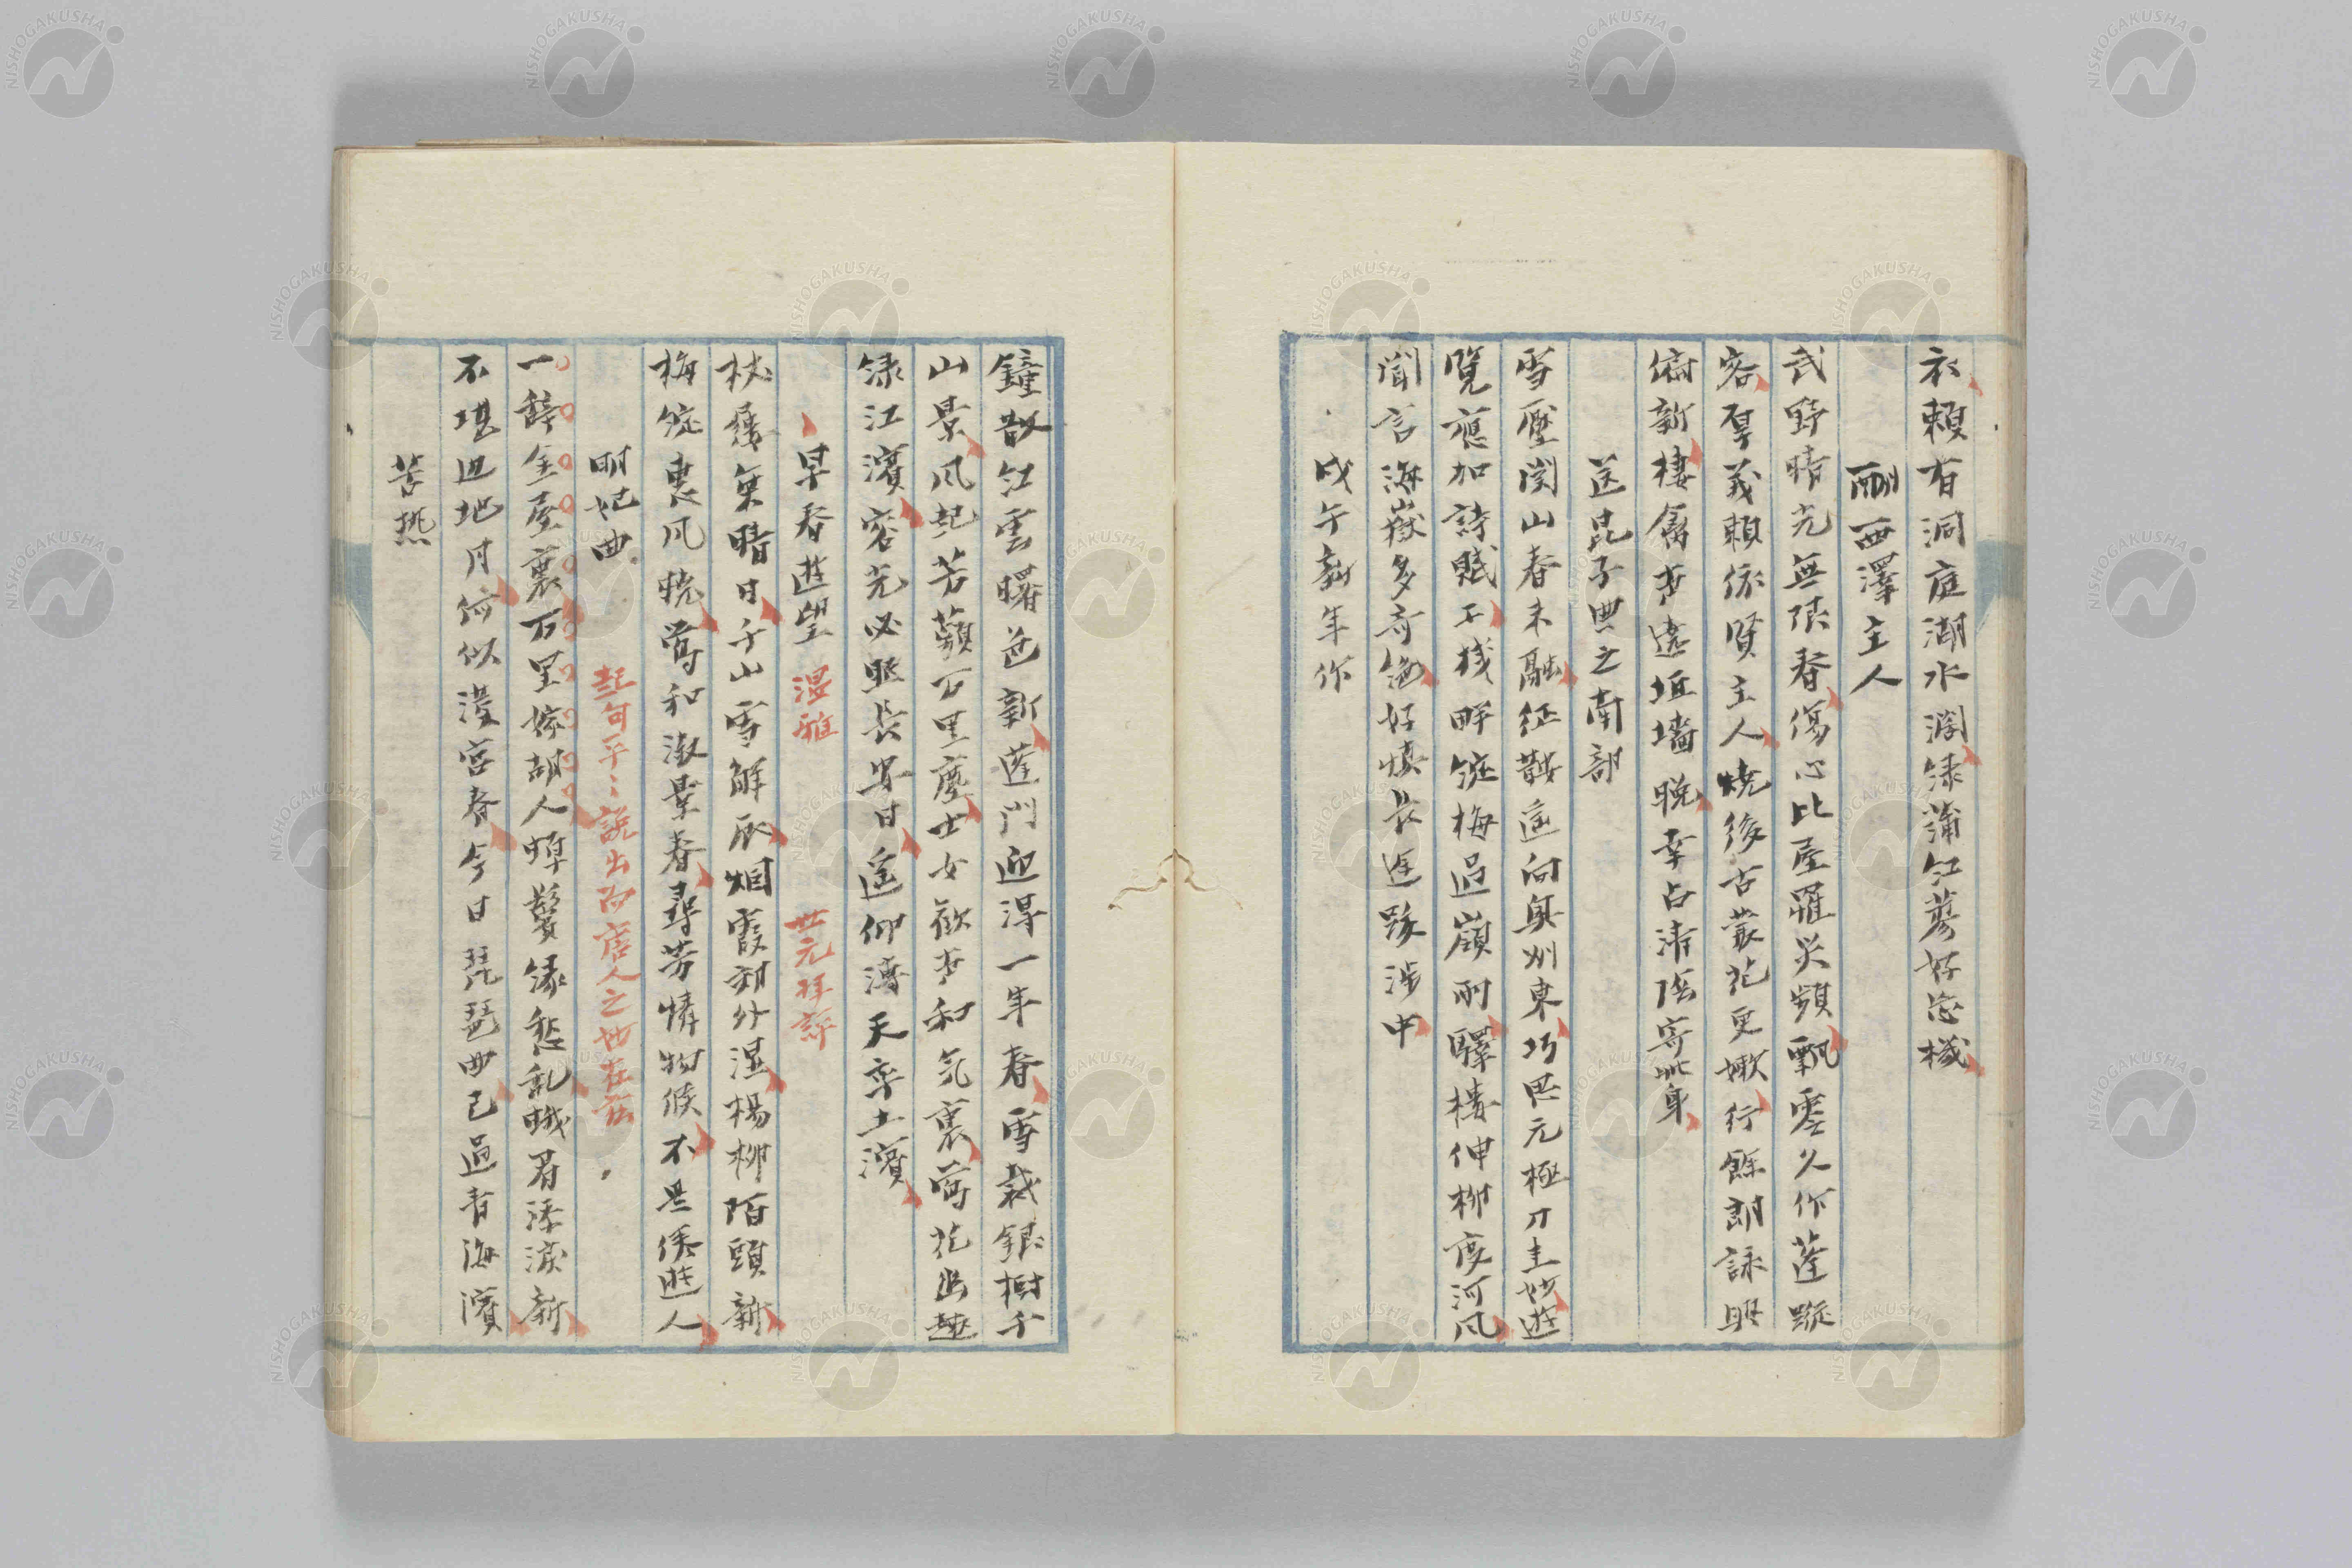 衣賴有洞庭湖水濶緑蒲江蓼好忘機
酬西澤主人
武野晴光無限春傷心比屋罹災頻飄零久作蓬蹤
客厚義賴依賢主人燒後古叢花更嫩行餘朗詠興
俯新棲舊連垣墻晩幸占清陰寄此身
送昆子典之南部
雪壓関山春未融征鞍遙向奥州東巧思元極刀圭妙遊
覧應加詩賦工棧畔綻梅過嶺雨驛樓伸柳度河風
聞言海嶽多奇絶好慎長途跋渉中
戊午新年作
鐘散江雲曙色新蓬門迎得一年春雪裁銀樹千
山景風起芳蘋万里塵士女歓和気裏鶯花幽趣
緑江濱容光必照長安日遙仰溥天率土濱
早春遊望 温雅 世元拝評
杖屨無晴日千山雪解辰烟霞郊外湿楊柳陌頭新
梅綻東風暁鶯和淑景春尋芳憐物候不是倦遊人
明妃曲 起句平〻説出為唐人之妙在茲
一辞金屋裏万里嫁胡人蝉鬢縁愁乱蛾眉添涙新
不堪辺地月何似漢宮春今日琵琶曲已過青海濱
苦熱
NISHOGAKUSHA